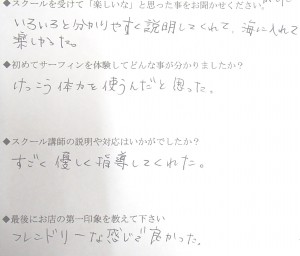 ◆スクールを受けて「楽しいな」と思った事をお聞かせください
いろいろと分かりやすく説明してくれて、海に入れて
楽しかった。
◆初めてサーフィンを体験してどんな事が分かりましたか？
けっこう体力を使うんだと思った。
◆スクール講師の説明や対応はいかがでしたか？
すごく優しく指導してくれた。
◆最後にお店の第一印象を教えて下さい
フレンドリーな感じで良かった。